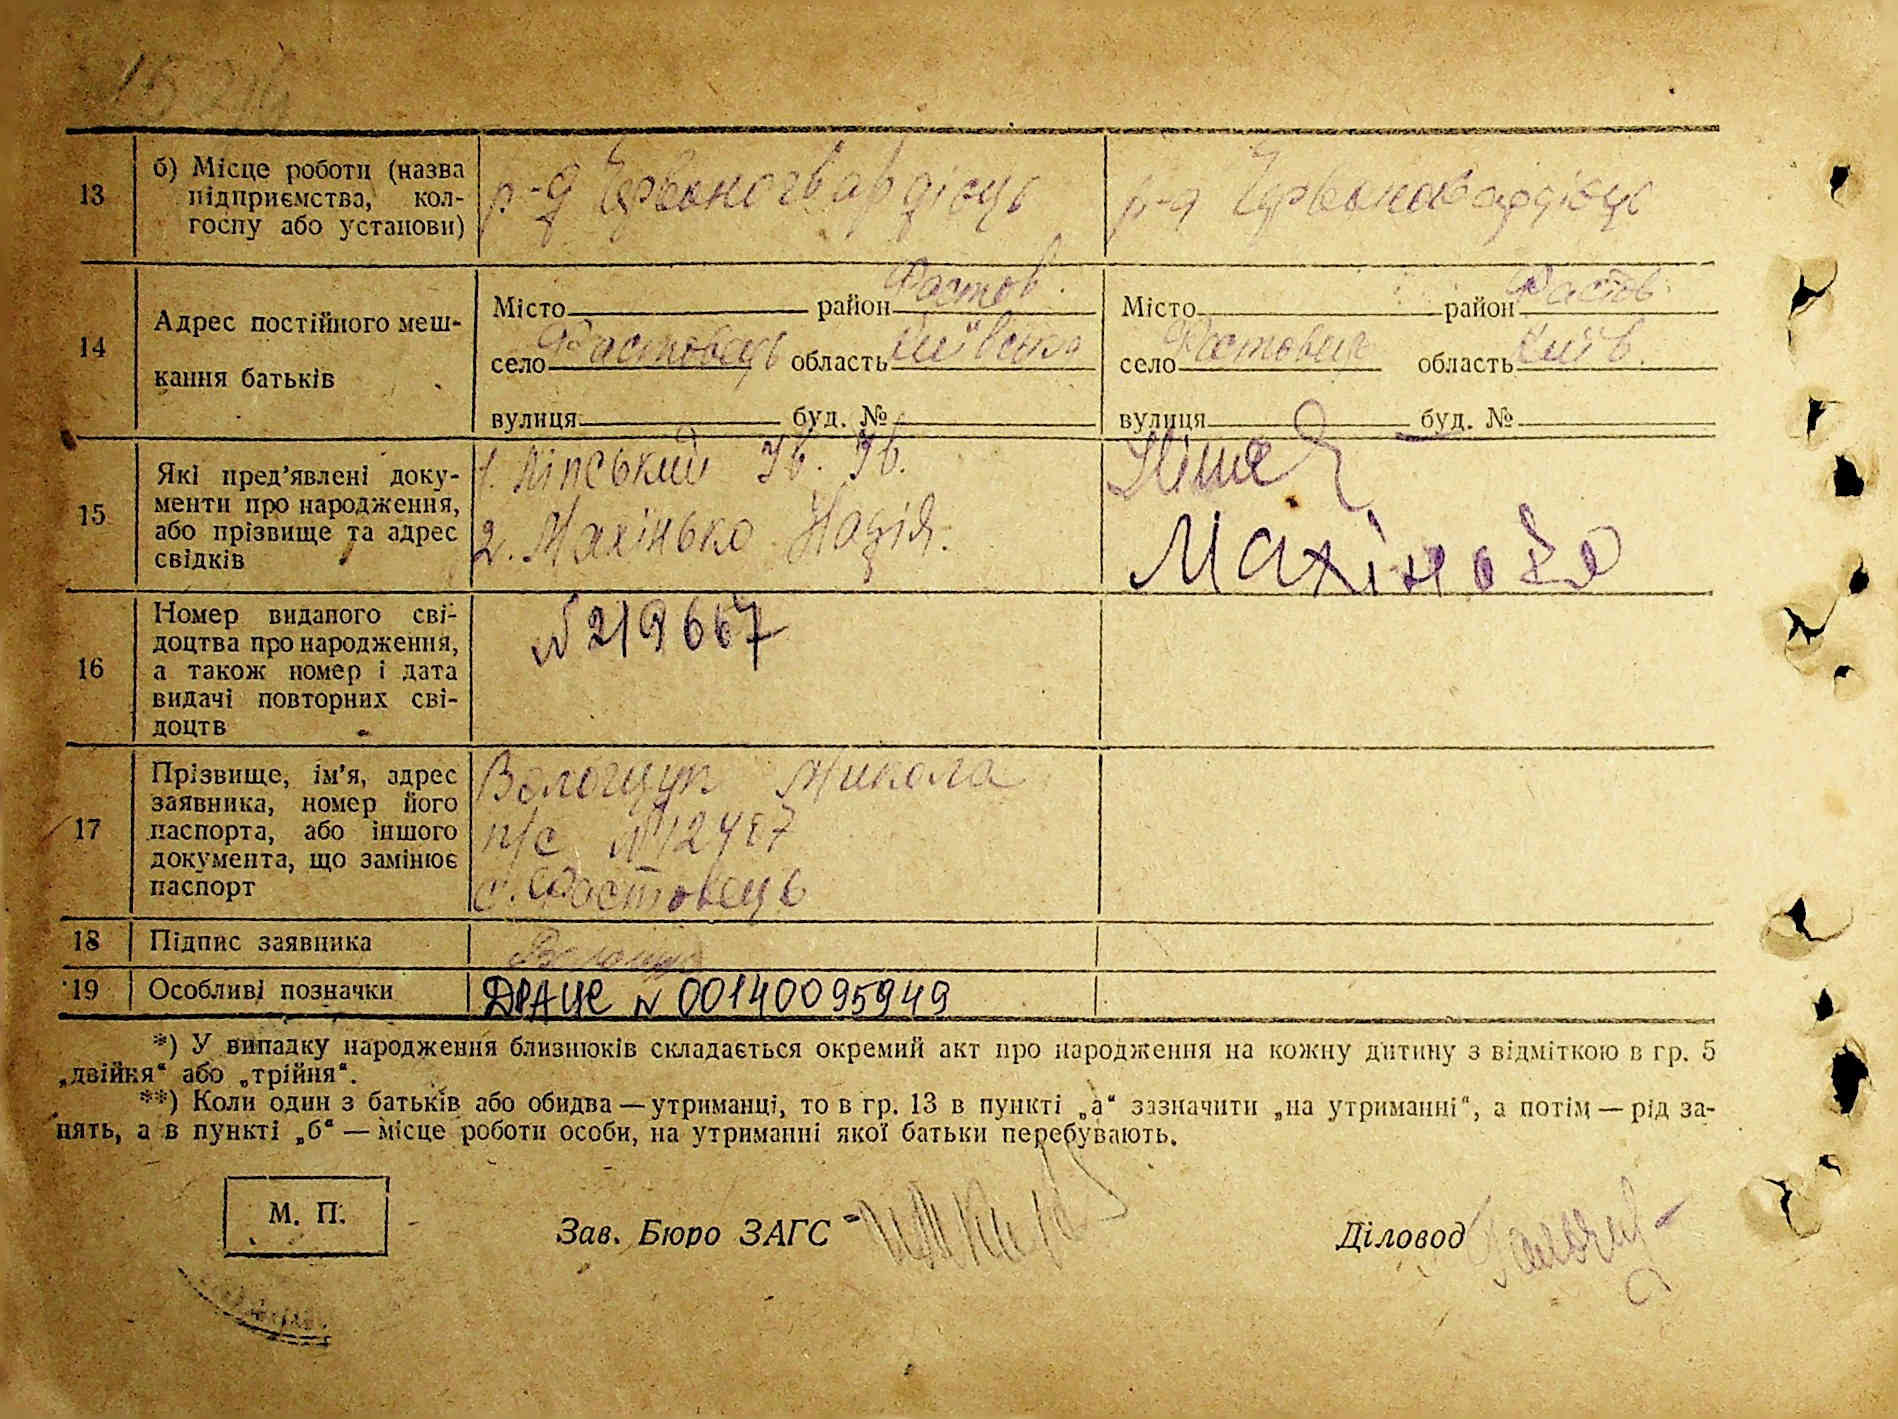 13
б) Місце роботи (назва
підприємства, кол-
госпу або установи)
р-д Червоногвардієць
р-д Червоногвардієць
14
Адрес постійного меш-
кання батьків
Місто район Фастов.
село Фастовець область Київська
вулиця буд. №
Місто район Фастов.
село Фастовець область Київ.
вулиця буд. №
15
Які пред’явлені доку-
менти про народження,
або прізвище та адрес
свідків
1. Ліпський Ів. Ів.
2. Махінько Надія.
16
Номер виданого сві-
доцтва про народження,
а також номер і дата
видачі повторних сві-
доцтв
№ 219667
17
Прізвище, ім’я, адрес
заявника, номер його
паспорта, або іншого
документа, що замінює
паспорт
Волощук Микола
п/с № 12487
с. Фастовець
18
Підпис заявника
19
Особливі позначки
ДРАЦС N 00140095949
*) У випадку народження близнюків складається окремий акт про народження на кожну дитину з відміткою в гр. 5
„двійня“ або „трійня“.
**) Коли один з батьків або обидва — утриманці, то в гр. 13 в пункті „а“ зазначити „на утриманні“, а потім — рід за-
нять, а в пункті „б“ — місце роботи особи, на утриманні якої батьки перебувають.
М. П.
Зав. Бюро ЗАГС
Діловод